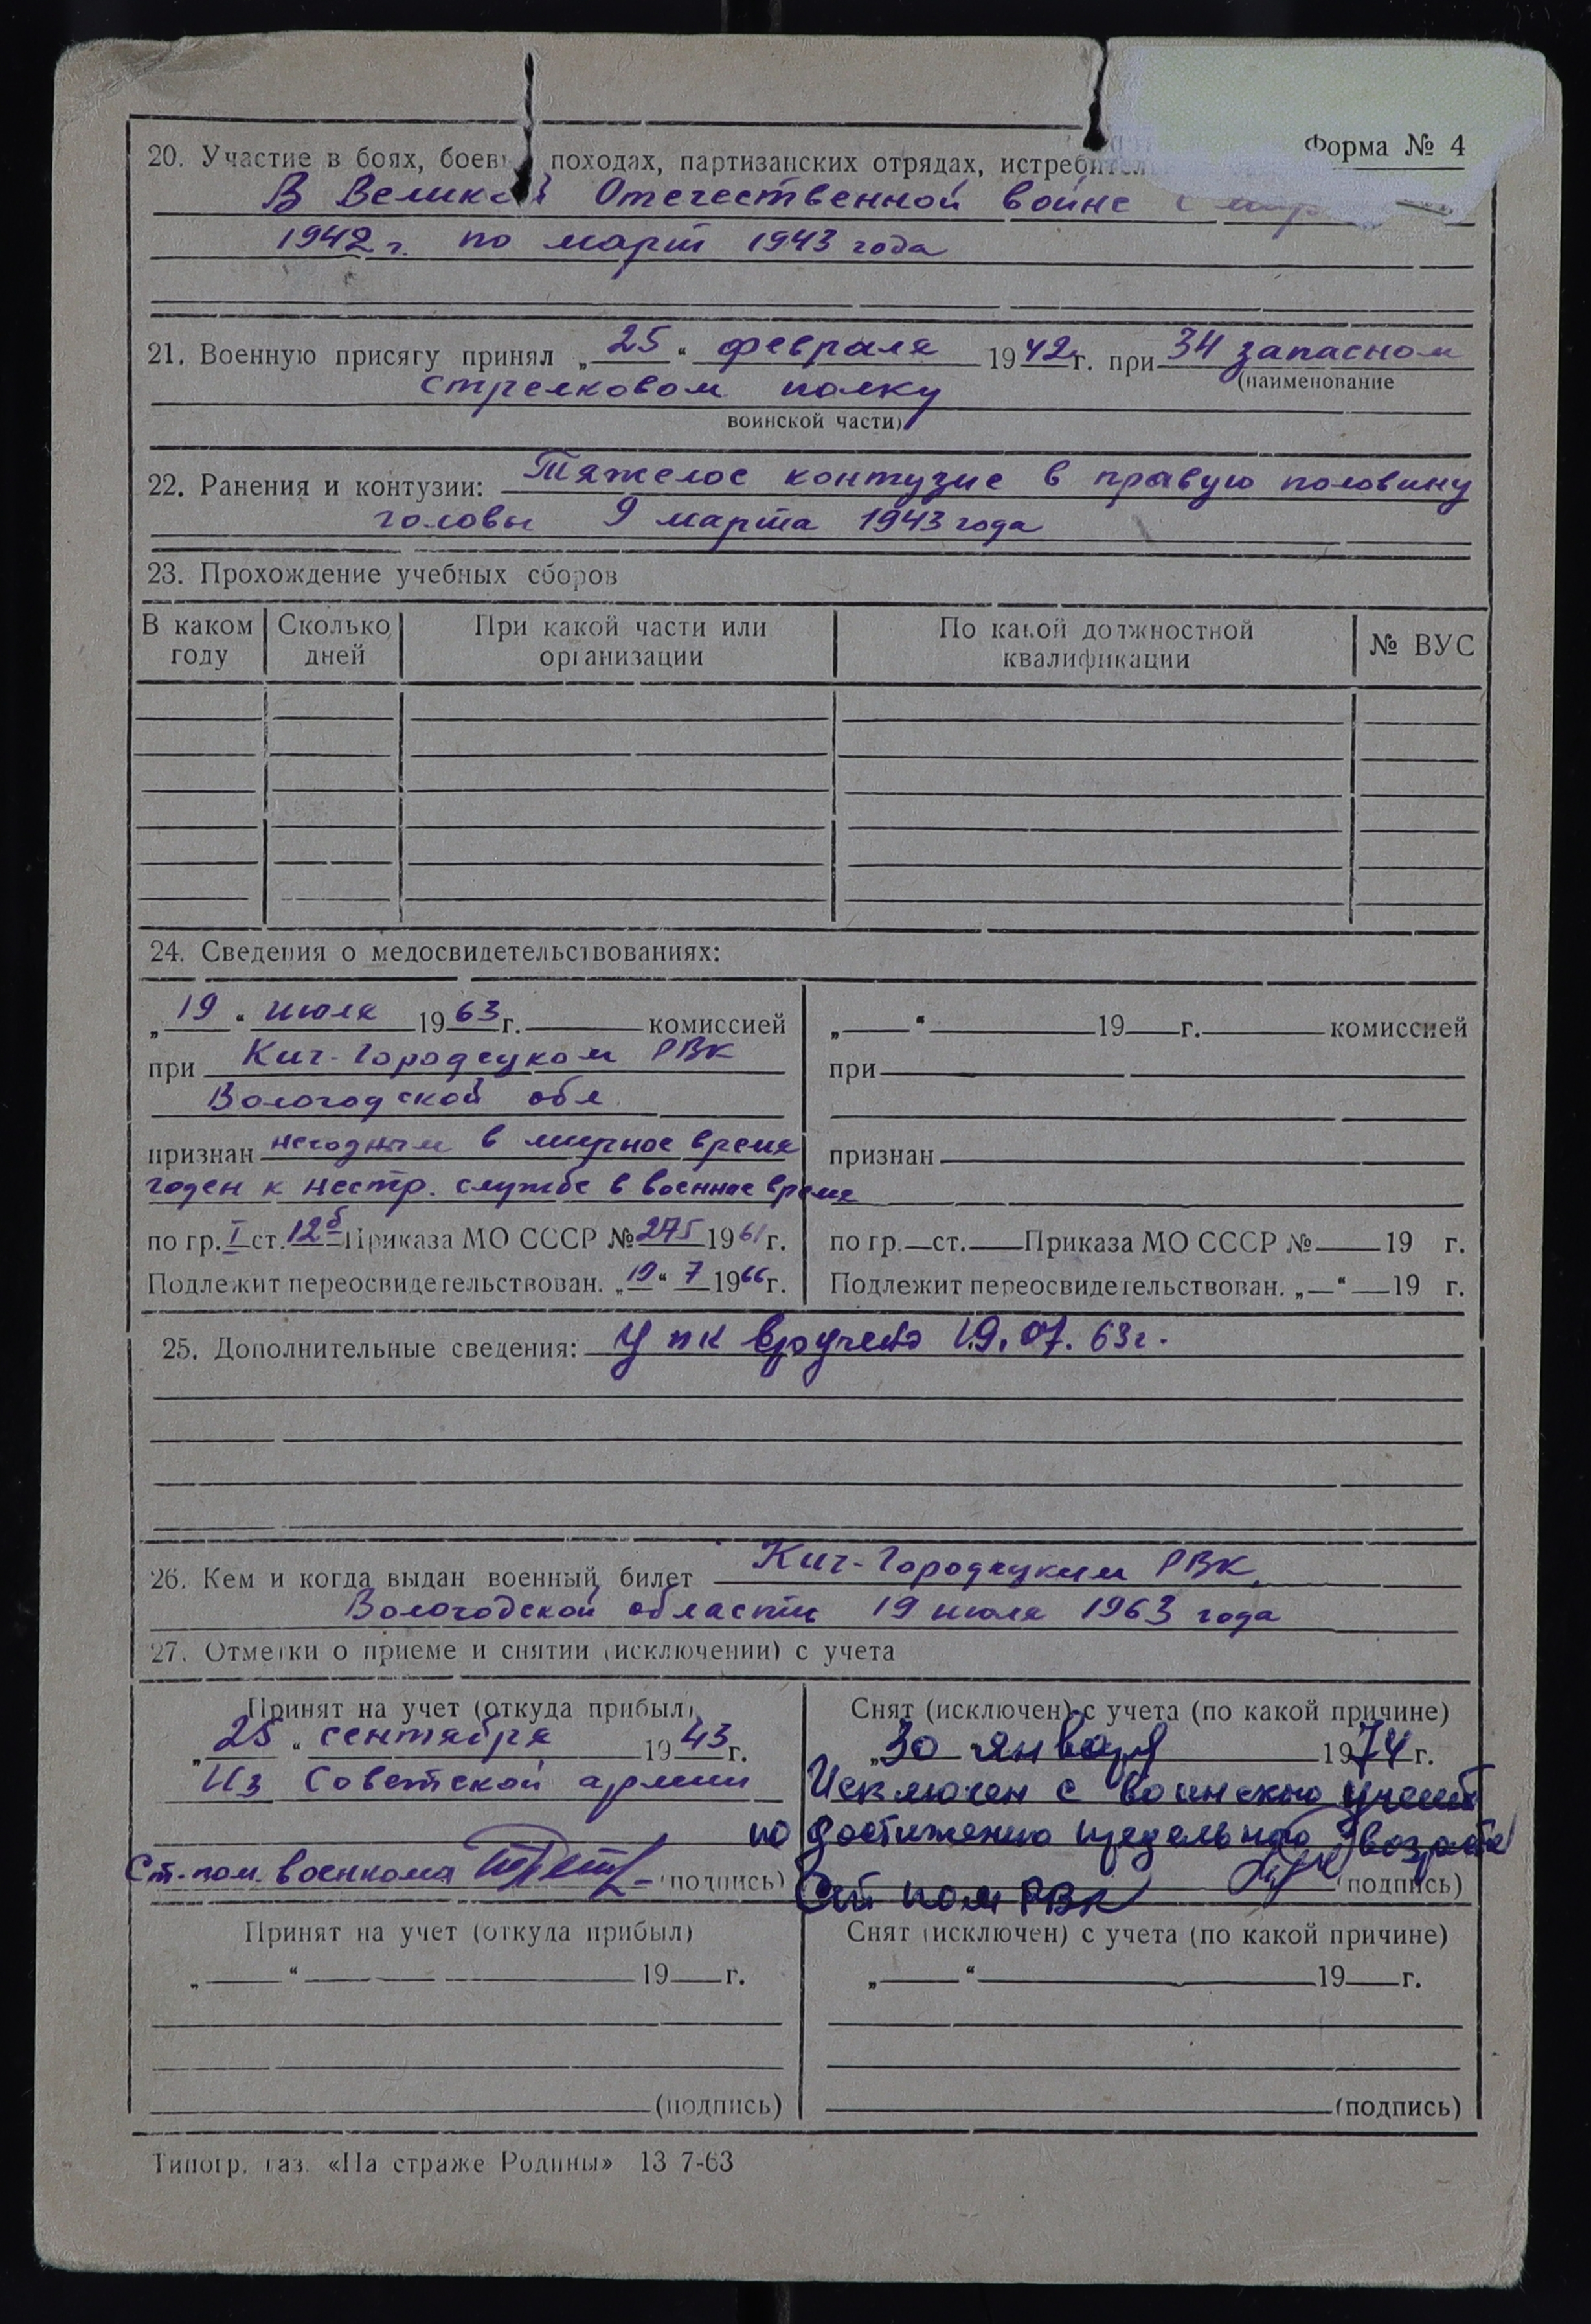 Форма № 4
20. Участие в боях, боев походах, партизанских отрядах, истребител
В Великой Отечественной войне с
1942 г. по март 1943 года
21. Военную присягу принял „25“ февраля 1942 г. при 34 запасном
(наименование
стрелковом полку
воинской части)
22. Ранения и контузии: Тяжелое контузие в правую половину
головы 9 марта 1943 года
23. Прохождение учебных сборов
В каком году Сколько дней При какой части или организации По какой должностной квалификации № ВУС
24. Сведения о медосвидетельствованиях:
„19“ июля 1963 г. комиссией
при Кич-Городецком РВК
Вологодской обл.
признан негодным в мирное время
годен к нестр. службе в военное время
по гр. I ст. 12б Приказа МО СССР № 275 1961 г.
Подлежит переосвидетельствован. „19“ 7 1966 г.
„ “ 19 г. комиссией
при
признан
по гр. ст. Приказа МО СССР № 19 г.
Подлежит переосвидетельствован. „ “ 19 г.
25. Дополнительные сведения: У пк вручено 19.07.63г.
26. Кем и когда выдан военный билет Кич-Городецким РВК,
Вологодской области 19 июля 1963 года
27. Отметки о приеме и снятии (исключении) с учета
Принят на учет (откуда прибыл)
„25“ сентября 1943 г.
Из Советской армии
Ст. пом. военкома (подпись)
Снят (исключен) с учета (по какой причине)
„30“ января 1974 г.
Исключен с воинского учета
по достижению предельного возраста
Ст пом РВК (подпись)
Принят на учет (откуда прибыл)
„ “ 19 г.
(подпись)
Снят (исключен) с учета (по какой причине)
„ “ 19 г.
(подпись)
Типогр. газ. «На страже Родины» 13 7-63